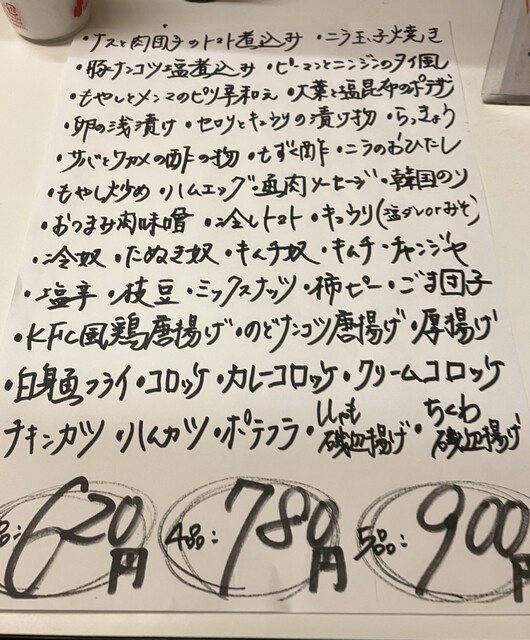 ・ナスと肉団子のトマト煮込み ・ニラ玉子焼き
・豚ナンコツ塩煮込み ・ピーマンとニンジンのタイ風
・もやしとメンマのピリ辛和え ・大葉と塩昆布のポテサ
・卵の浅漬け ・セロリとキュウリの漬け物 ・らっきょう
・サバとワカメの酢の物 ・もずく酢 ・ニラのおひたし
・もやし炒め ・ハムエッグ ・魚肉ソーセージ ・韓国のり
・おつまみ肉味噌 ・冷しトマト ・キュウリ(塩ダレorみそ)
・冷奴 ・たぬき奴 ・キムチ奴 ・キムチ ・チャンジャ
・塩辛 ・枝豆 ・ミックスナッツ ・柿ピー ・ごま団子
・KFC風鶏唐揚げ ・のどナンコツ唐揚げ ・厚揚げ
・白身魚フライ ・コロッケ ・カレーコロッケ ・クリームコロッケ
チキンカツ ・ハムカツ ・ポテフラ ・ししゃも磯辺揚げ ・ちくわ磯辺揚げ
品:620円 4品:780円 5品:900円